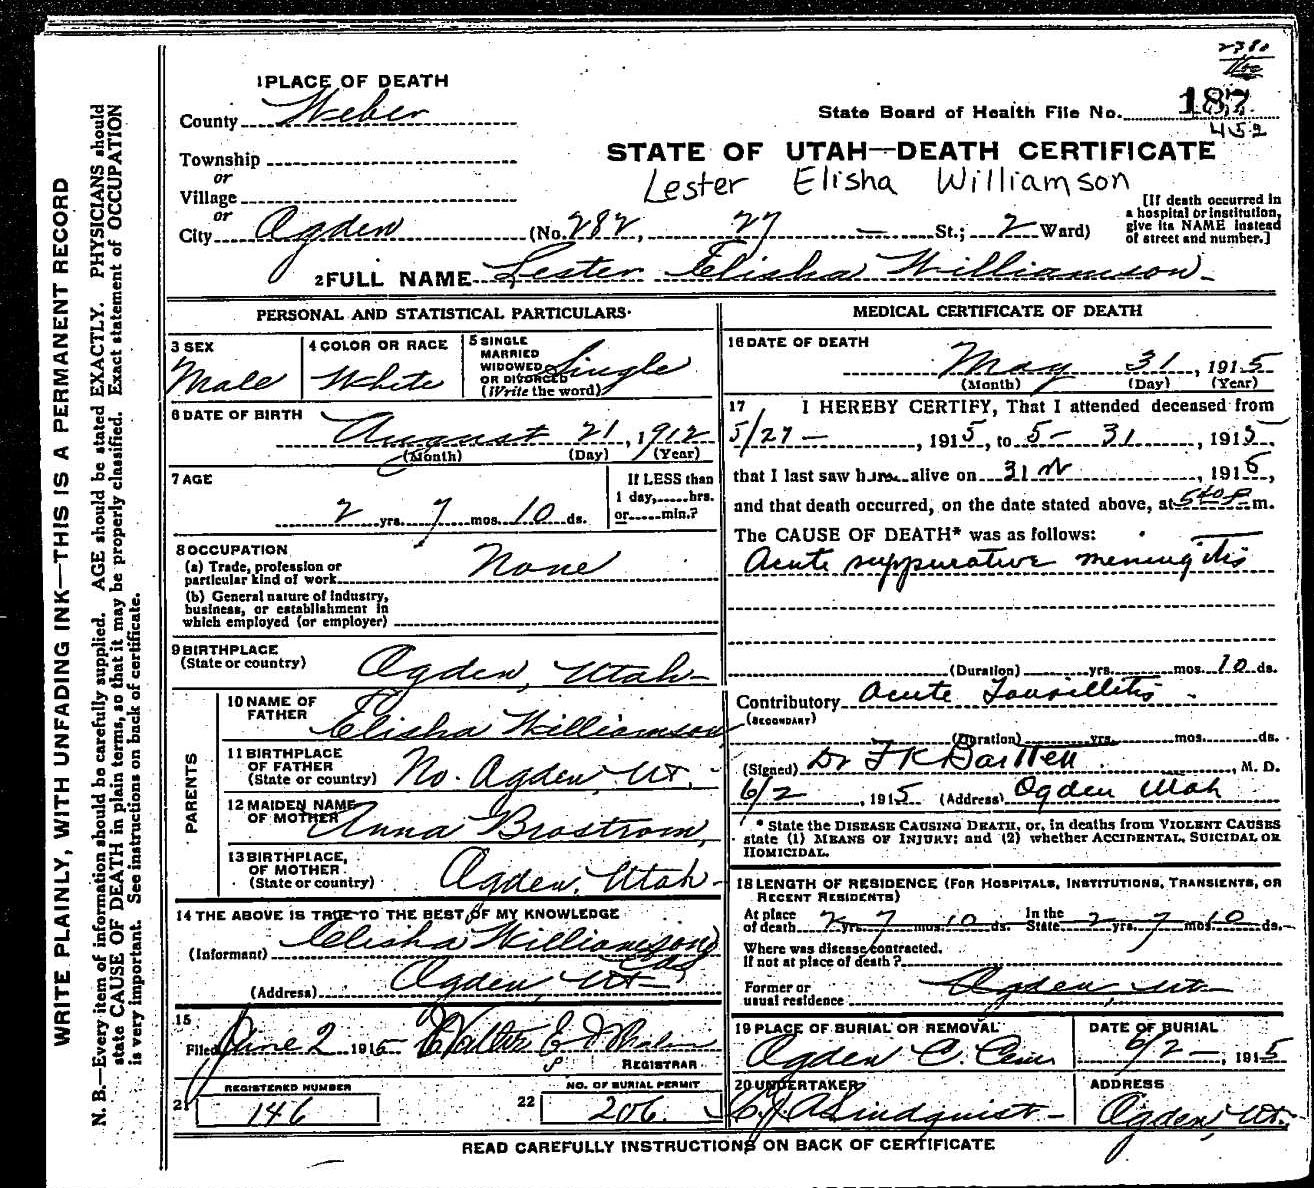 2380
1 PLACE OF DEATH
County Weber
State Board of Health File No. 187
452
Township
or
Village
or
STATE OF UTAH—DEATH CERTIFICATE
Lester Elisha Williamson
City Ogden (No. 282, 27 — St.; 2 Ward)
[If death occurred in
a hospital or institution,
give its NAME instead
of street and number.]
2 FULL NAME Lester Elisha Williamson
PERSONAL AND STATISTICAL PARTICULARS
3 SEX
Male
4 COLOR OR RACE
White
5 SINGLE
MARRIED
WIDOWED
OR DIVORCED
(Write the word)
Single
6 DATE OF BIRTH
August 21, 1912
(Month) (Day) (Year)
7 AGE
2 yrs. 7 mos. 10 ds.
If LESS than
1 day, hrs.
or min.?
8 OCCUPATION
(a) Trade, profession or
particular kind of work
None
(b) General nature of industry,
business, or establishment in
which employed (or employer)
9 BIRTHPLACE
(State or country)
Ogden, Utah
PARENTS
10 NAME OF
FATHER
Elisha Williamson
11 BIRTHPLACE
OF FATHER
(State or country)
No. Ogden, Ut.
12 MAIDEN NAME
OF MOTHER
Anna Brostrom,
13 BIRTHPLACE,
OF MOTHER
(State or country)
Ogden, Utah
14 THE ABOVE IS TRUE TO THE BEST OF MY KNOWLEDGE
(Informant) Elisha Williamson
(Address) Ogden, Ut
15
Filed June 2 1915 Walter
REGISTRAR
REGISTERED NUMBER
21 146
NO. OF BURIAL PERMIT
22 206
MEDICAL CERTIFICATE OF DEATH
16 DATE OF DEATH
May 31, 1915
(Month) (Day) (Year)
17 I HEREBY CERTIFY, That I attended deceased from
5/27 — , 1915, to 5 - 31 , 1915,
that I last saw him alive on 31st , 1915,
and that death occurred, on the date stated above, at 5 40 P m.
The CAUSE OF DEATH* was as follows:
Acute suppurative meningitis
(Duration) yrs. mos. 10 ds.
Contributory Acute Tonsillitis
(SECONDARY)
(Duration) yrs. mos. ds.
(Signed) Dr F K Bartlett, M. D.
6/2, 1915 (Address) Ogden Utah
* State the DISEASE CAUSING DEATH, or, in deaths from VIOLENT CAUSES
state (1) MEANS OF INJURY; and (2) whether ACCIDENTAL, SUICIDAL OR
HOMICIDAL.
18 LENGTH OF RESIDENCE (FOR HOSPITALS, INSTITUTIONS, TRANSIENTS, OR
RECENT RESIDENTS)
At place
of death 2 yrs. 7 mos. 10 ds. In the
State 2 yrs. 7 mos. 10 ds.
Where was disease contracted.
If not at place of death?
Former or
usual residence Ogden, Ut
19 PLACE OF BURIAL OR REMOVAL
Ogden C. Cem
DATE OF BURIAL
6/2 —, 1915
20 UNDERTAKER
C. J. A. Lindquist
ADDRESS
Ogden, Ut.
READ CAREFULLY INSTRUCTIONS ON BACK OF CERTIFICATE
WRITE PLAINLY, WITH UNFADING INK—THIS IS A PERMANENT RECORD
N. B.—Every item of information should be carefully supplied. AGE should be stated EXACTLY. PHYSICIANS should
state CAUSE OF DEATH in plain terms, so that it may be properly classified. Exact statement of OCCUPATION
is very important. See instructions on back of certificate.